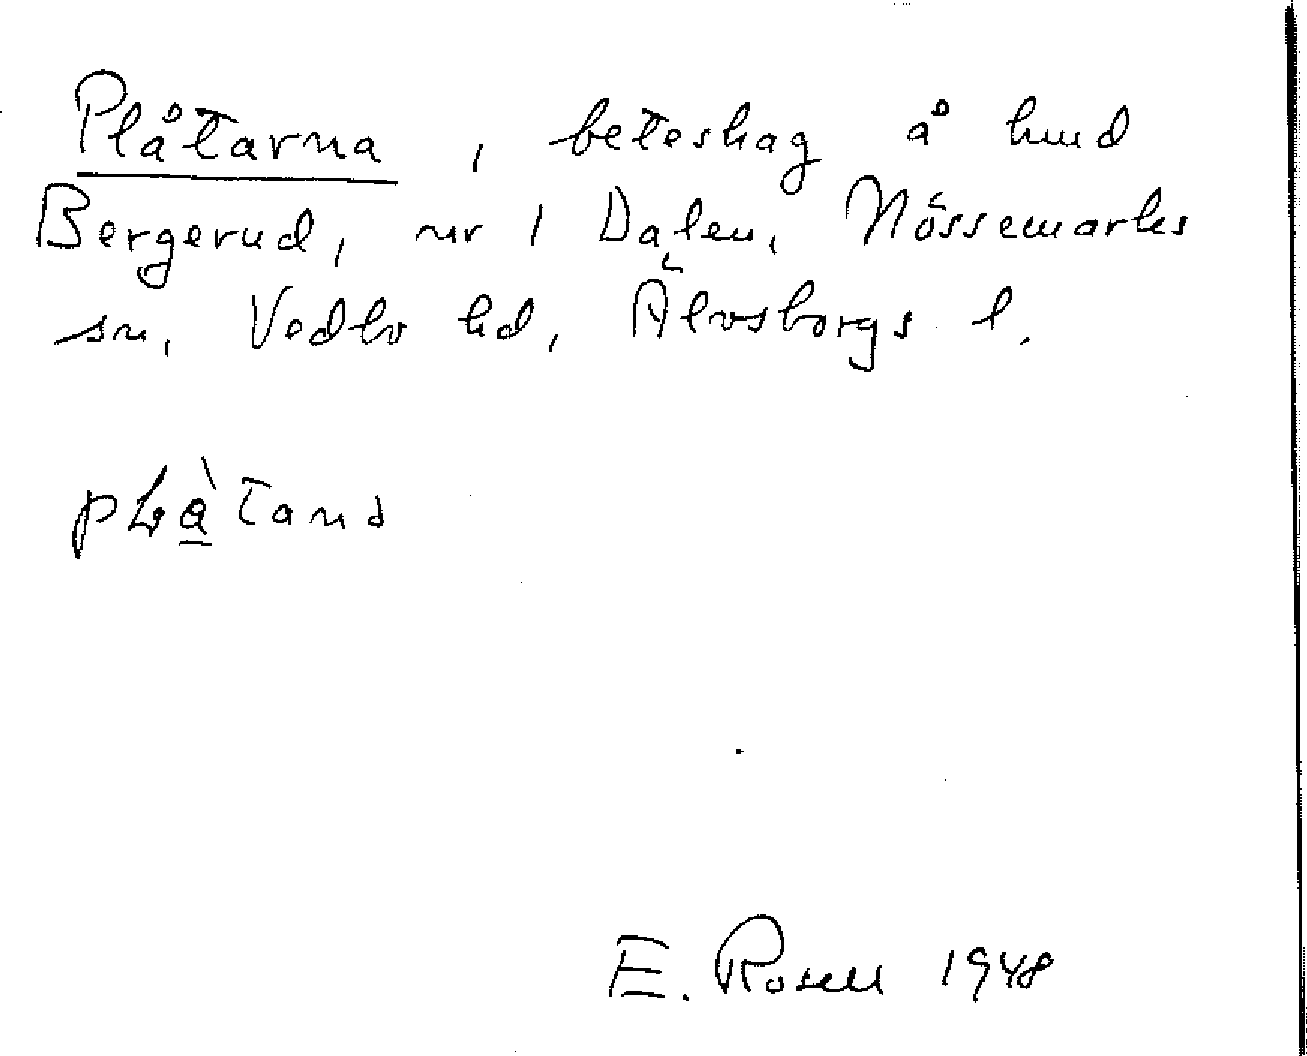 Plåtarna, beteshag å hmd
Bergerud, nr 1 Dalen, Nössemarks
sn, Vedbo hd, Älvsborgs l.
E. Rosell 1948